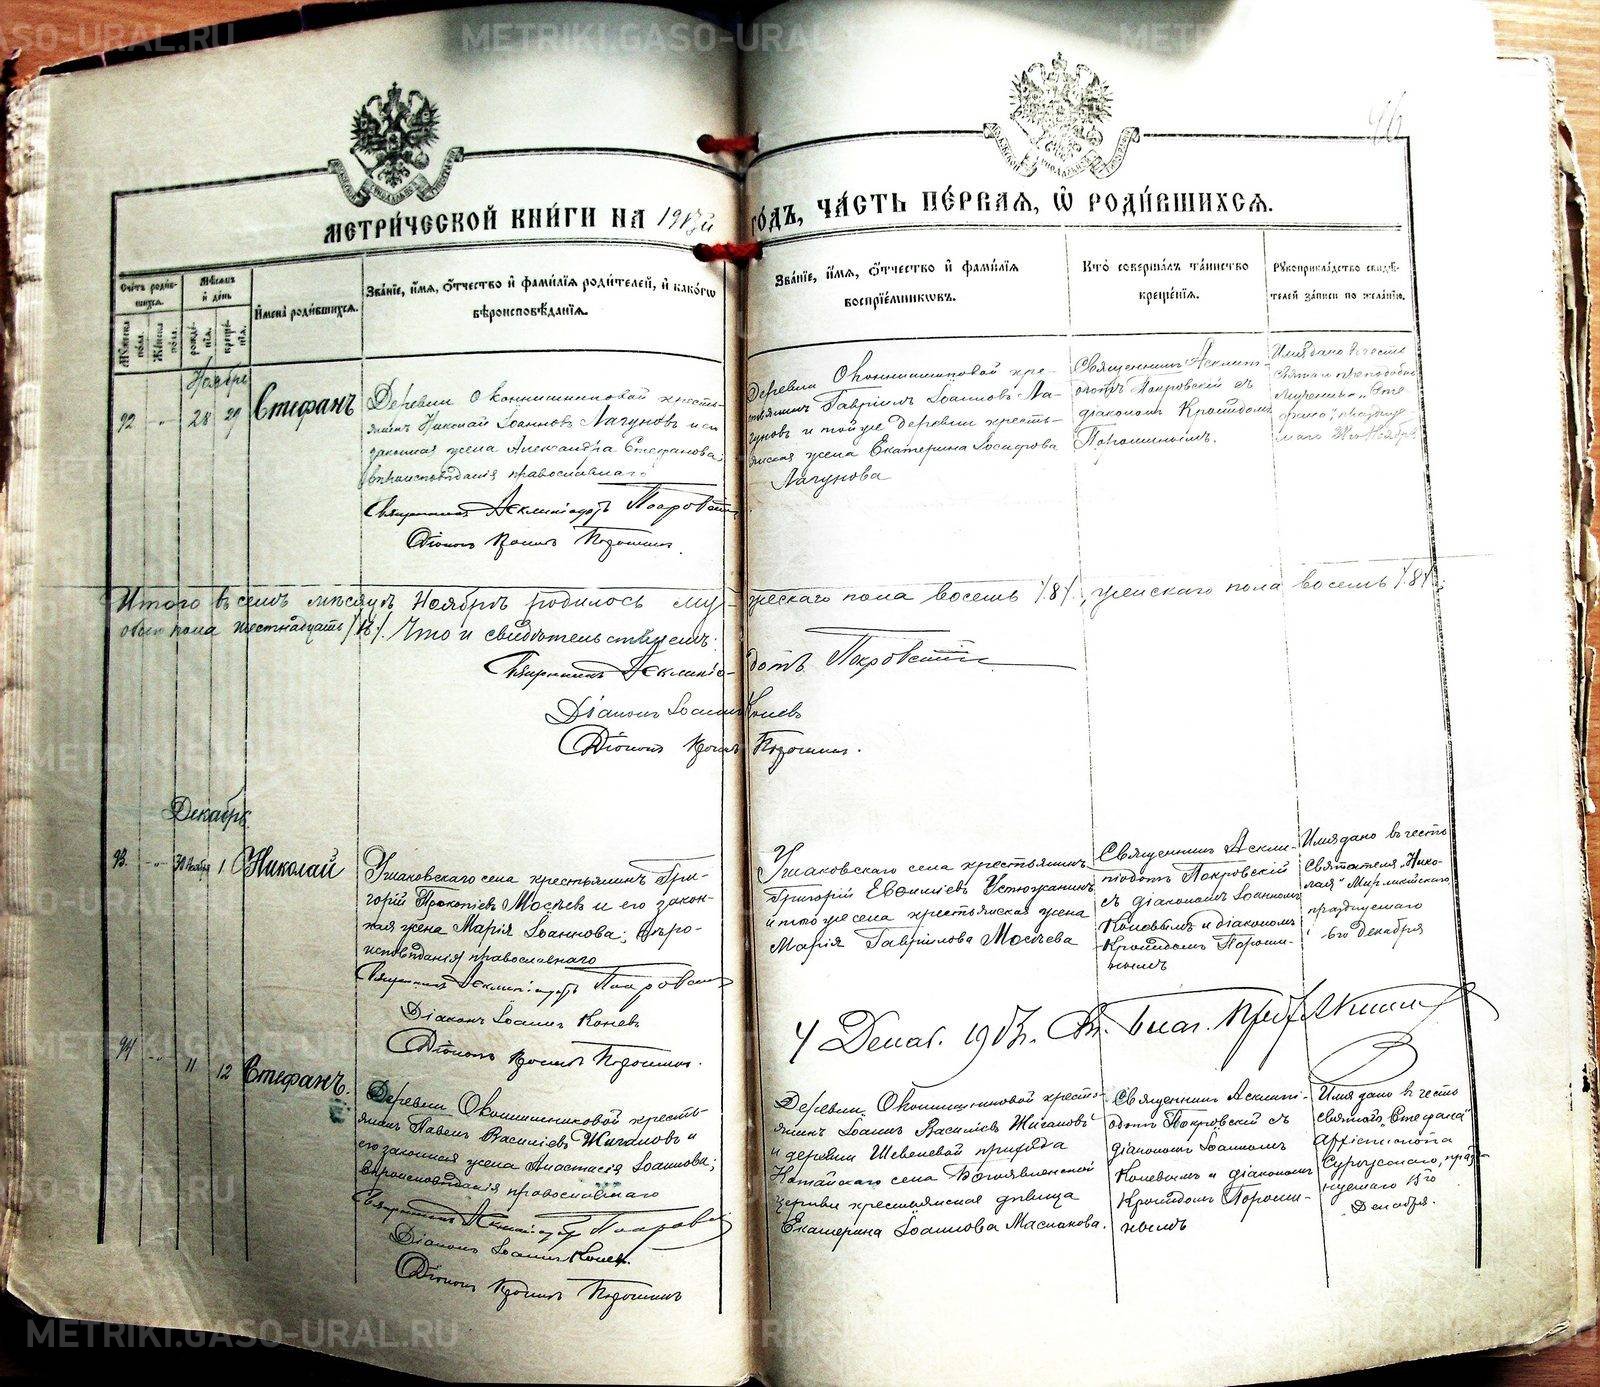 METRIKI.GASO-URAL.RU
96
МЕТРИ́ЧЕСКОЙ КНИ́ГИ НА 1913й ГО́ДЪ, ЧА́СТЬ ПЕ́РВАЯ, Ѡ҆ РОДИ́ВШИХСЯ.
Сче́тъ роди́вшихся.
Мꙋ́жеска по́ла.
Же́нска по́ла.
Мѣ́сѧцъ и҆ де́нь
рожде́нїѧ.
креще́нїѧ.
И҆мена̀ роди́вшихсѧ.
Зва́нїе, и҆́мѧ, ѻ҆́тчество и҆ фами́лїѧ роди́телей, и҆ како́гѡ
вѣроисповѣ́данїѧ.
Зва́нїе, и҆́мѧ, ѻ҆́тчество и҆ фами́лїѧ
воспрїе́мникѡвъ.
Кто̀ соверша́лъ та́инство
креще́нїѧ.
Рꙋкоприкла́дство свидѣ́-
телей за́писи по жела́нїю.
Ноябрь
92 -"- 28 29 Стефанъ
Деревни Оконишниковой кресть-
янинъ Николай Іоанновъ Лагуновъ и его
законная жена Александра Стефанова;
вѣроисповѣданія православнаго
Священникъ Асклипіодотъ Покровскій
Діаконъ Порошинъ.
Деревни Оконишниковой кре-
стьянинъ Гавріилъ Іоанновъ Ла-
гуновъ и той же деревни кресть-
янская жена Екатерина Іосифова
Лагунова
Священникъ Асклипі-
одотъ Покровскій съ
діакономъ Кронидомъ
Порошинымъ.
Имя дано въ честь
Итого въ семъ мѣсяцѣ Ноябрѣ родилось му-
жескаго пола восемь /8/, женскаго пола восемь /8/;
обоего пола шестнадцать /16/. Что и свидѣтельствуемъ:
Священникъ Асклипіодотъ Покровскій
Діаконъ Іоаннъ Коневъ
Діаконъ Порошинъ.
Декабрь
93. -"- 30 Ноября 1 Николай
Ушаковскаго села крестьянинъ Гри-
горій Прокопіевъ Мосѣевъ и его закон-
ная жена Марія Іоаннова; вѣро-
исповѣданія православнаго
Священникъ Асклипіодотъ Покровскій
Діаконъ Іоаннъ Коневъ
Діаконъ Порошинъ.
Ушаковскаго села крестьянинъ
Григорій Евѳиміевъ Устюжанинъ
и того же села крестьянская жена
Марія Гавріилова Мосѣева
Священникъ Аскли-
піодотъ Покровскій
съ діакономъ Іоанномъ
Коневымъ и діакономъ
Кронидомъ Пороши-
нымъ
Имя дано въ честь
Святителя „Нико-
лая" Мирликійскаго
празднуемаго
6го Декабря
4 Декаб. 1913г.
94 -"- 11 12 Стефанъ.
Деревни Оконишниковой кресть-
янинъ Павелъ Василіевъ Жигаловъ и
его законная жена Анастасія Іоаннова;
вѣроисповѣданія православнаго
Священникъ Асклипіодотъ Покровскій
Діаконъ Іоаннъ Коневъ.
Діаконъ Порошинъ
Деревни Оконишниковой кресть-
янинъ Іоаннъ Василіевъ Жигаловъ
и деревни Шевелевой прихода
Катайскаго села Богоявленской
церкви крестьянская дѣвица
Екатерина Іоаннова Маслакова.
Священникъ Асклипі-
одотъ Покровскій съ
діакономъ Іоанномъ
Коневымъ и діакономъ
Кронидомъ Пороши-
нымъ
Имя дано въ честь
святаго „Стефана"
Архіепископа
Сурожскаго, празд-
нуемаго 15го
Декабря.